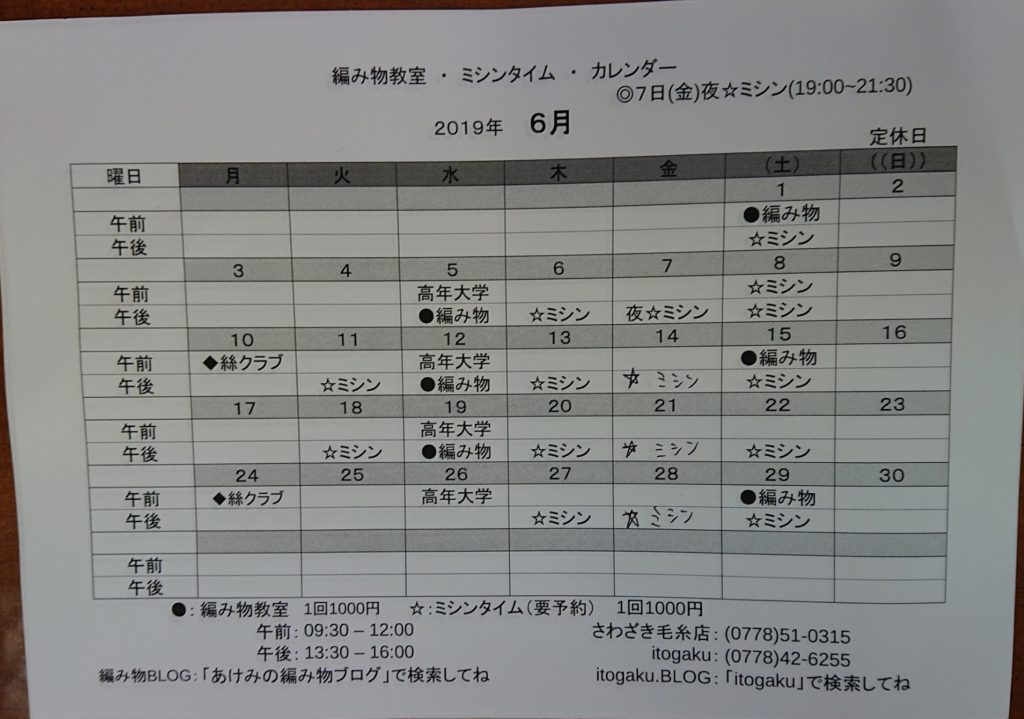 編み物教室 ・ ミシンタイム ・ カレンダー
◎7日(金)夜☆ミシン(19:00~21:30)
2019年 6月
定休日
曜日 月 火 水 木 金 (土) ((日))
1 2
午前 ●編み物
午後 ☆ミシン
3 4 5 6 7 8 9
午前 高年大学 ☆ミシン
午後 ●編み物 ☆ミシン 夜☆ミシン ☆ミシン
10 11 12 13 14 15 16
午前 ◆絲クラブ 高年大学 ●編み物
午後 ☆ミシン ●編み物 ☆ミシン ☆ミシン ☆ミシン
17 18 19 20 21 22 23
午前 高年大学
午後 ☆ミシン ●編み物 ☆ミシン ☆ミシン ☆ミシン
24 25 26 27 28 29 30
午前 ◆絲クラブ 高年大学 ●編み物
午後 ☆ミシン ☆ミシン ☆ミシン
午前
午後
●：編み物教室 1回1000円 ☆：ミシンタイム（要予約） 1回1000円
午前：09:30 – 12:00
さわざき毛糸店：(0778)51-0315
午後：13:30 – 16:00
itogaku：(0778)42-6255
編み物BLOG：「あけみの編み物ブログ」で検索してね
itogaku.BLOG：「itogaku」で検索してね